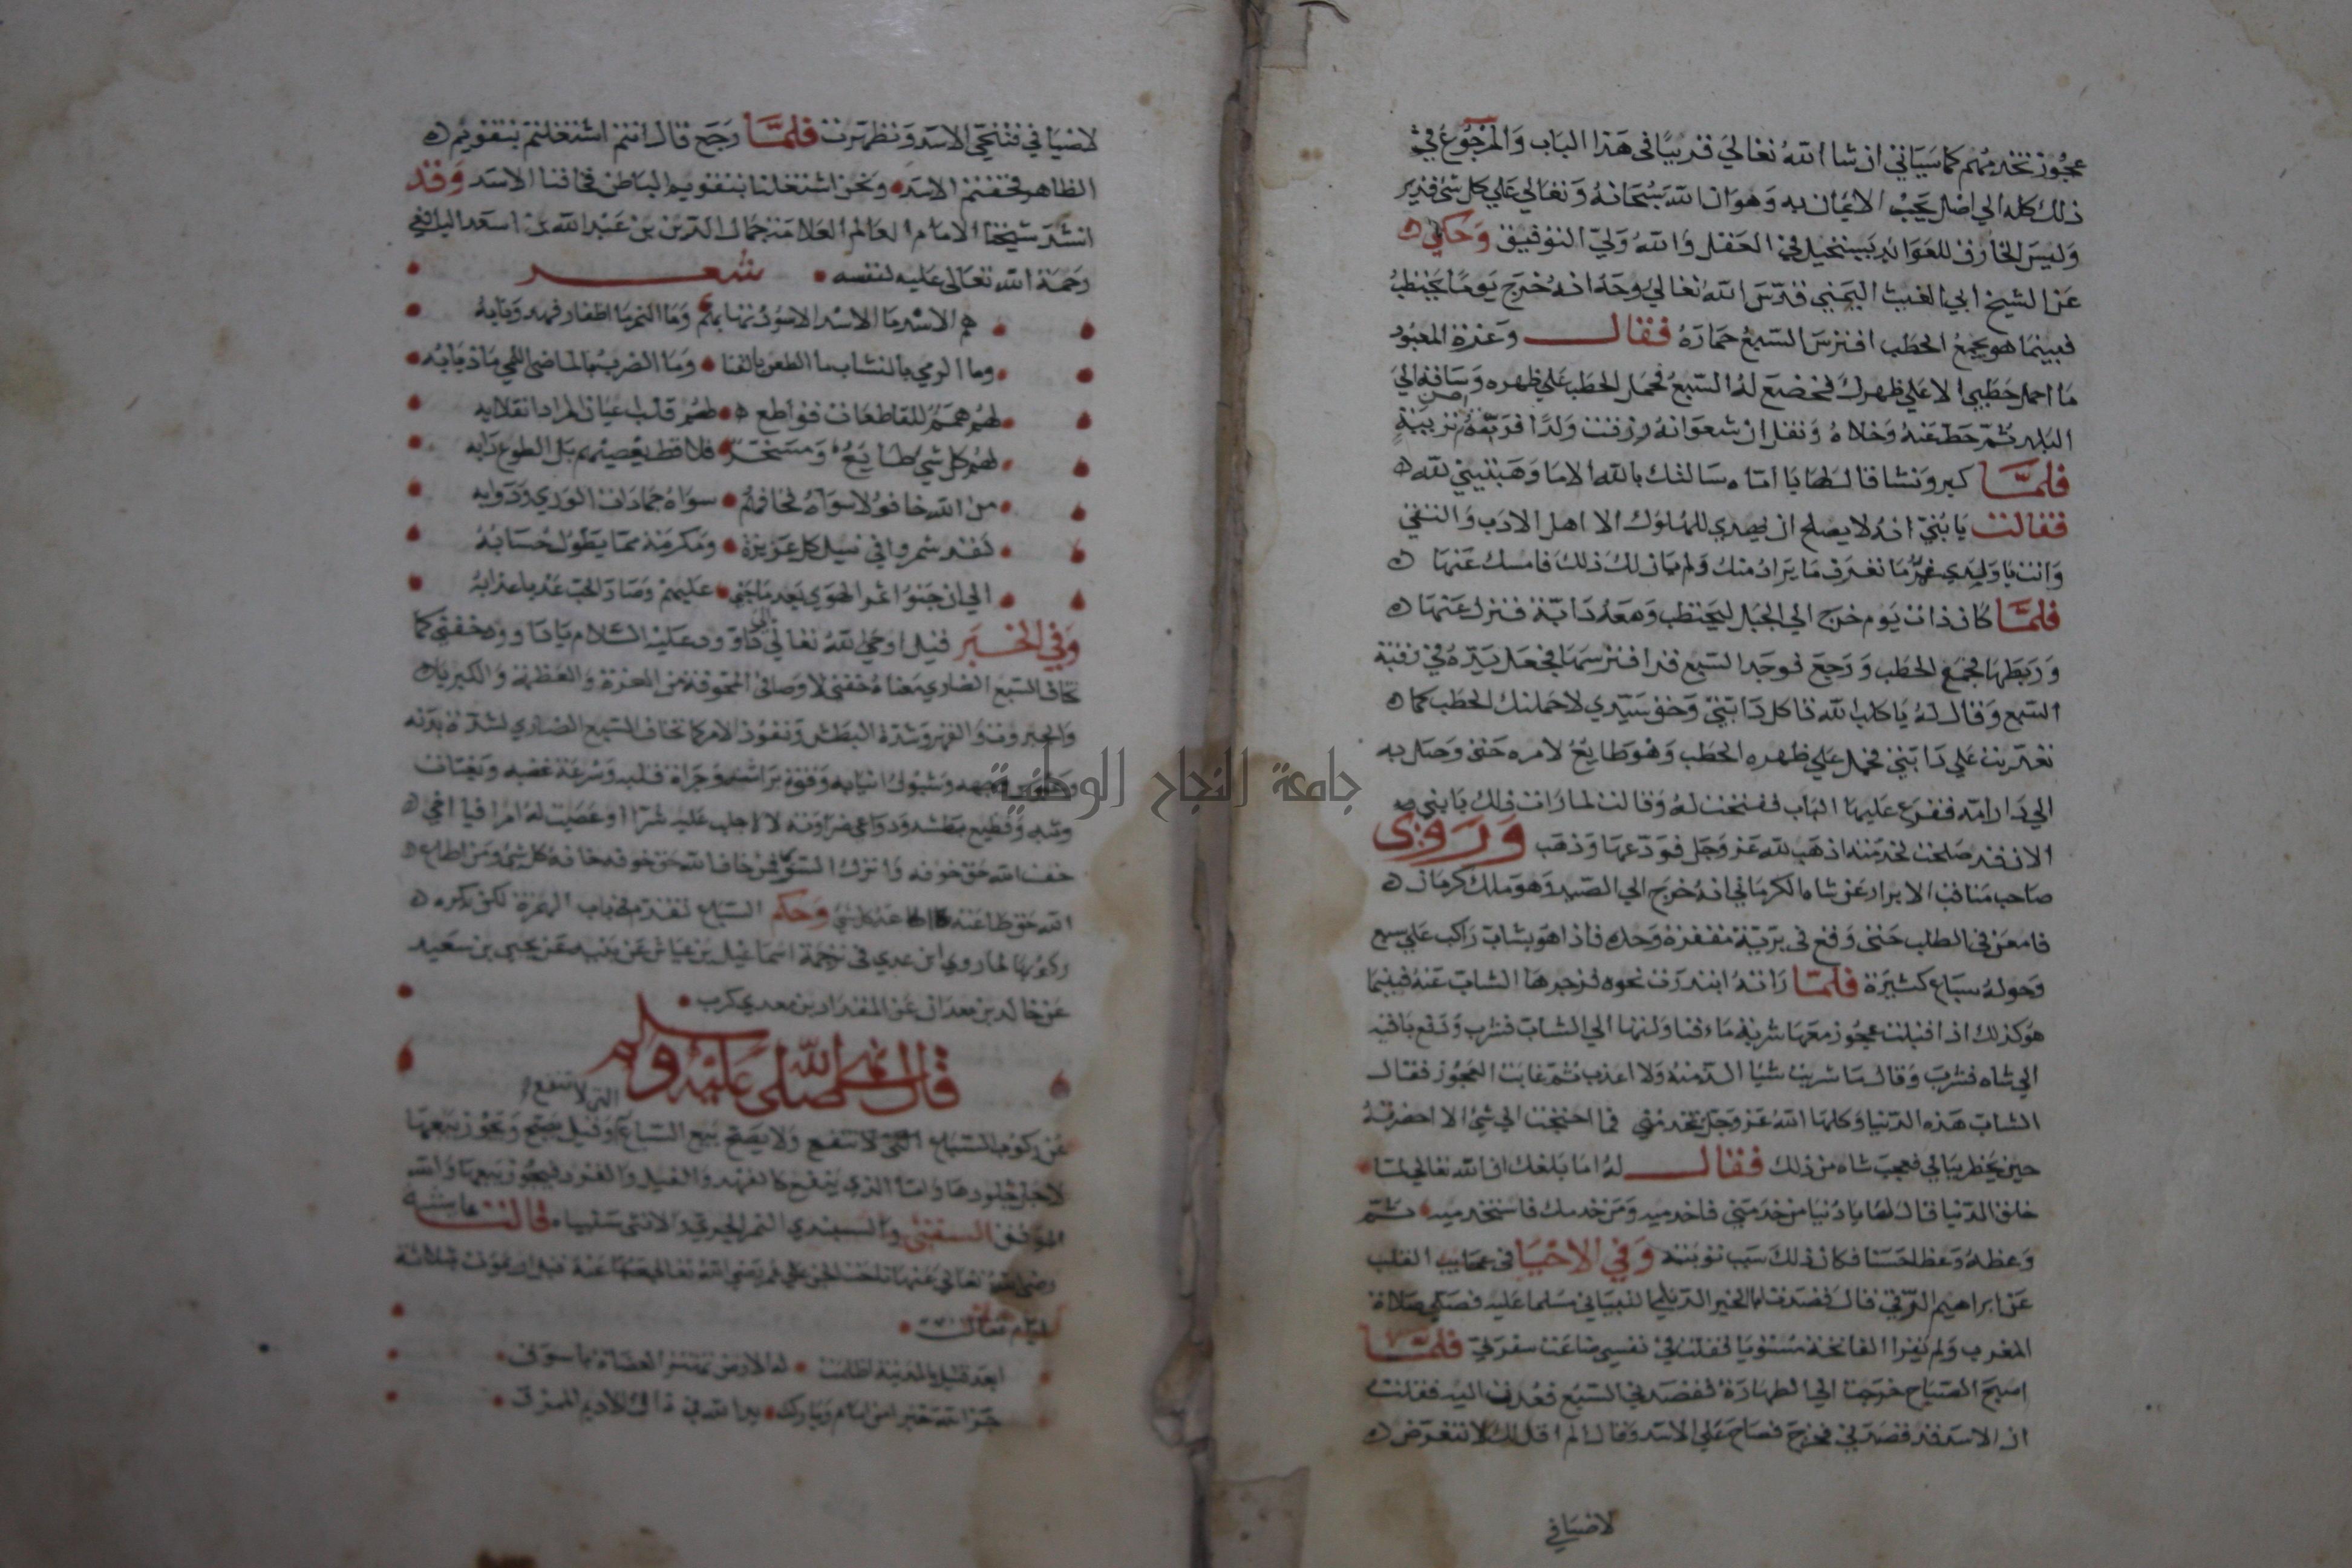 عجوز تخدمهم كما سياتي ان شا الله تعالي قريبا في هذا الباب والمرجوع في
ذلك كله الي اصل يجب الايمان به وهو ان الله سبحانه وتعالي علي كل شي قدير
وليس الخارق للعوايد بمستحيل في العقل والله ولي التوفيق وحكي
عن الشيخ ابي الغيث اليمني قدس الله تعالي روحه انه خرج يوما يحتطب
فبينما هو يجمع الحطب افترس السبع حماره فقال وعزة المعبود
ما احمل حطبي الا علي ظهرك فخضع له السبع فحمل الحطب علي ظهره وساقه الي
البلد ثم حط عنه وخلاه ونقل ان شعوانه رزقت ولدا فربته احسن تربية
فلما كبر ونشا قال لها يا اماه سالتك بالله الا ما وهبتيني لله
فقالت يا بني انه لا يصلح ان يهدي للملوك الا اهل الادب والتقي
وانت يا ولدي غمر ما تعرف ما يراد منك ولم يان لك ذلك فامسك عنها
فلما كان ذات يوم خرج الي الجبل ليحتطب ومعه دابة فنزل عنها
وربطها فجمع الحطب ورجع فوجد السبع قد افترسها فجعل يده في رقبة
السبع وقال له يا كلب الله تاكل دابتي وحق سيدي لاحملنك الحطب كما
تعديت علي دابتي فحمل علي ظهره الحطب وهو طايع لامره حتي وصل به
الي دار امه فقرع عليها الباب ففتحت له وقالت لما رات ذلك يا بني
الان قد صلحت لخدمته اذهب لله عز وجل فودعها وذهب وروي
صاحب مناقب الابرار عن شاه الكرماني انه خرج الي الصيد وهو ملك كرمان
فامعن في الطلب حتي وقع في برية مقفرة وحده فاذا هو بشاب راكب علي سبع
وحوله سباع كثيرة فلما راته ابتدرت نحوه فزجرها الشاب عنه فبينما
هو كذلك اذ اقبلت عجوز معها شربة ماء فناولتها الي الشاب فشرب ودفع باقيه
الي شاه فشرب وقال ما شربت شيا الذ منه ولا اعذب ثم غابت العجوز فقال
الشاب هذه الدنيا وكلها الله عز وجل بخدمتي فما احتجت الي شي الا احضرته
حين يخطر ببالي فعجب شاه من ذلك فقال له اما بلغك ان الله تعالي لما
خلق الدنيا قال لها يا دنيا من خدمني فاخدميه ومن خدمك فاستخدميه ثم
وعظه وعظا حسنا فكان ذلك سبب توبته وفي الاحيا في عجايب القلب
عن ابراهيم الرقي قال قصدت ابا الخير الديلمي التيناتي مسلما عليه فصلي صلاة
المغرب ولم يقرا الفاتحة مستويا فقلت في نفسي ضاعت سفرتي فلما
اصبح الصباح خرجت الي الطهارة فقصدني السبع فعدت اليه فقلت
ان الاسد قد قصدني فخرج فصاح علي الاسد وقال الم اقل لك لا تتعرض
لاضيافي
لاضيافي فتنحي الاسد وتطهرت فلما رجع قال انتم اشتغلتم بتقويم
الظاهر فخفتم الاسد ونحن اشتغلنا بتقويم الباطن فخافنا الاسد وقد
انشد شيخنا الامام العالم العلامة جمال الدين بن عبد الله بن اسعد اليافعي
رحمة الله تعالى عليه لنفسه شعر
هم الاسد ما الاسد الاسود تهابهم وما النمر ما اظفار فهد ونابه
وما الرمي بالنشاب ما الطعن بالقنا وما الضرب بالماضي الكمي ما ذبابه
لهم همم للقاطعات قواطع لهم قلب اعيان المراد انقلابه
لهم كل شي طايع ومسخر فلا قط يعصيهم بل الطوع دابه
من الله خافوا لا سواه فخافهم سواه جمادات الوري ودوابه
لقد شمروا في نيل كل عزيزة ومكرمة مما يطول حسابه
الي ان جنوا ثمر الهوي بعد ما جني عليهم وصار الحب عذبا عذابه
وفي الخبر قيل اوحي الله تعالي الي داوود عليه السلام يا داوود خفني كما
تخاف السبع الضاري معناه خفني لاوصافي المخوفة من العزة والعظمة والكبرياء
والجبروت والقهر وشدة البطش ونفوذ الامر كما تخاف السبع الضاري لشدة بدنه
وعبوس وجهه وشبوك انيابه وقوة براثنه وجراة قلبه وسرعة غضبه وبغتات
وثبه وفظيع بطشه ودواعي ضراوته لا لاجلب عليه شرا او عصيت له امرا فيا اخي
خف الله حق خوفه واترك السوي فمن خاف الله حق خوفه خافه كل شي ومن اطاع
الله حق طاعته اطاعه كل شي وحكم السباع تقدم في باب الهمزة لكن نكره
ركوبها لما روي ابن عدي في ترجمة اسماعيل بن عياش عن بقية عن يحيي بن سعيد
عن خالد بن معدان عن المقدام بن معدي كرب
قال صلى الله عليه وسلم
عن ركوب السباع التي لا تنتفع ولا يصح بيع السباع وقيل يصح ويجوز بيعها
لاجل جلودها واما الذي ينفع كالفهد والفيل والقرد فيجوز بيعها والله
الموفق السبنتي والسبندي النمر الجري والانثي سبنتاه قالت عايشة
رضي الله تعالي عنها ناحت الجن علي عمر رضي الله تعالي عنه قبل ان يموت بثلاثة
ايام فقالت
ابعد قتيل بالمدينة اظلمت له الارض تهتز العضاة باسوق
جزا الله خيرا من امام وباركت يد الله في ذاك الاديم الممزق
جامعة النجاح الوطنية